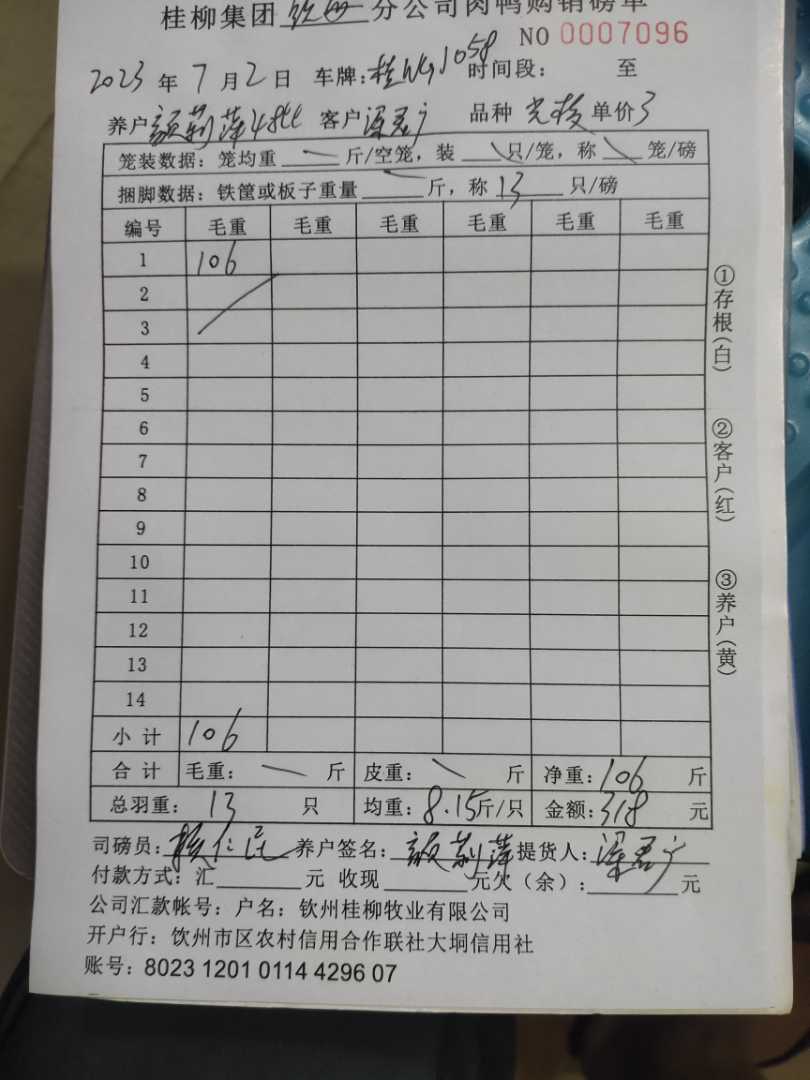 桂柳集团 钦州 分公司肉鸭购销磅单
NO 0007096
2023 年 7 月 2 日 车牌: 时间段: 至
养户 客户 品种 单价 3
笼装数据:笼均重 斤/空笼,装 只/笼,称 笼/磅
捆脚数据:铁筐或板子重量 斤,称 13 只/磅
编号 毛重 毛重 毛重 毛重 毛重 毛重
1 106
2
3
4
5
6
7
8
9
10
11
12
13
14
小计 106
合计 毛重: 斤 皮重: 斤 净重:106 斤
总羽重: 13 只 均重:8.15斤/只 金额:318 元
司磅员: 养户签名: 提货人:
付款方式:汇 元 收现 元欠(余): 元
公司汇款帐号:户名:钦州桂柳牧业有限公司
开户行:钦州市区农村信用合作联社大垌信用社
账号:8023 1201 0114 4296 07
①存根(白)
②客户(红)
③养户(黄)